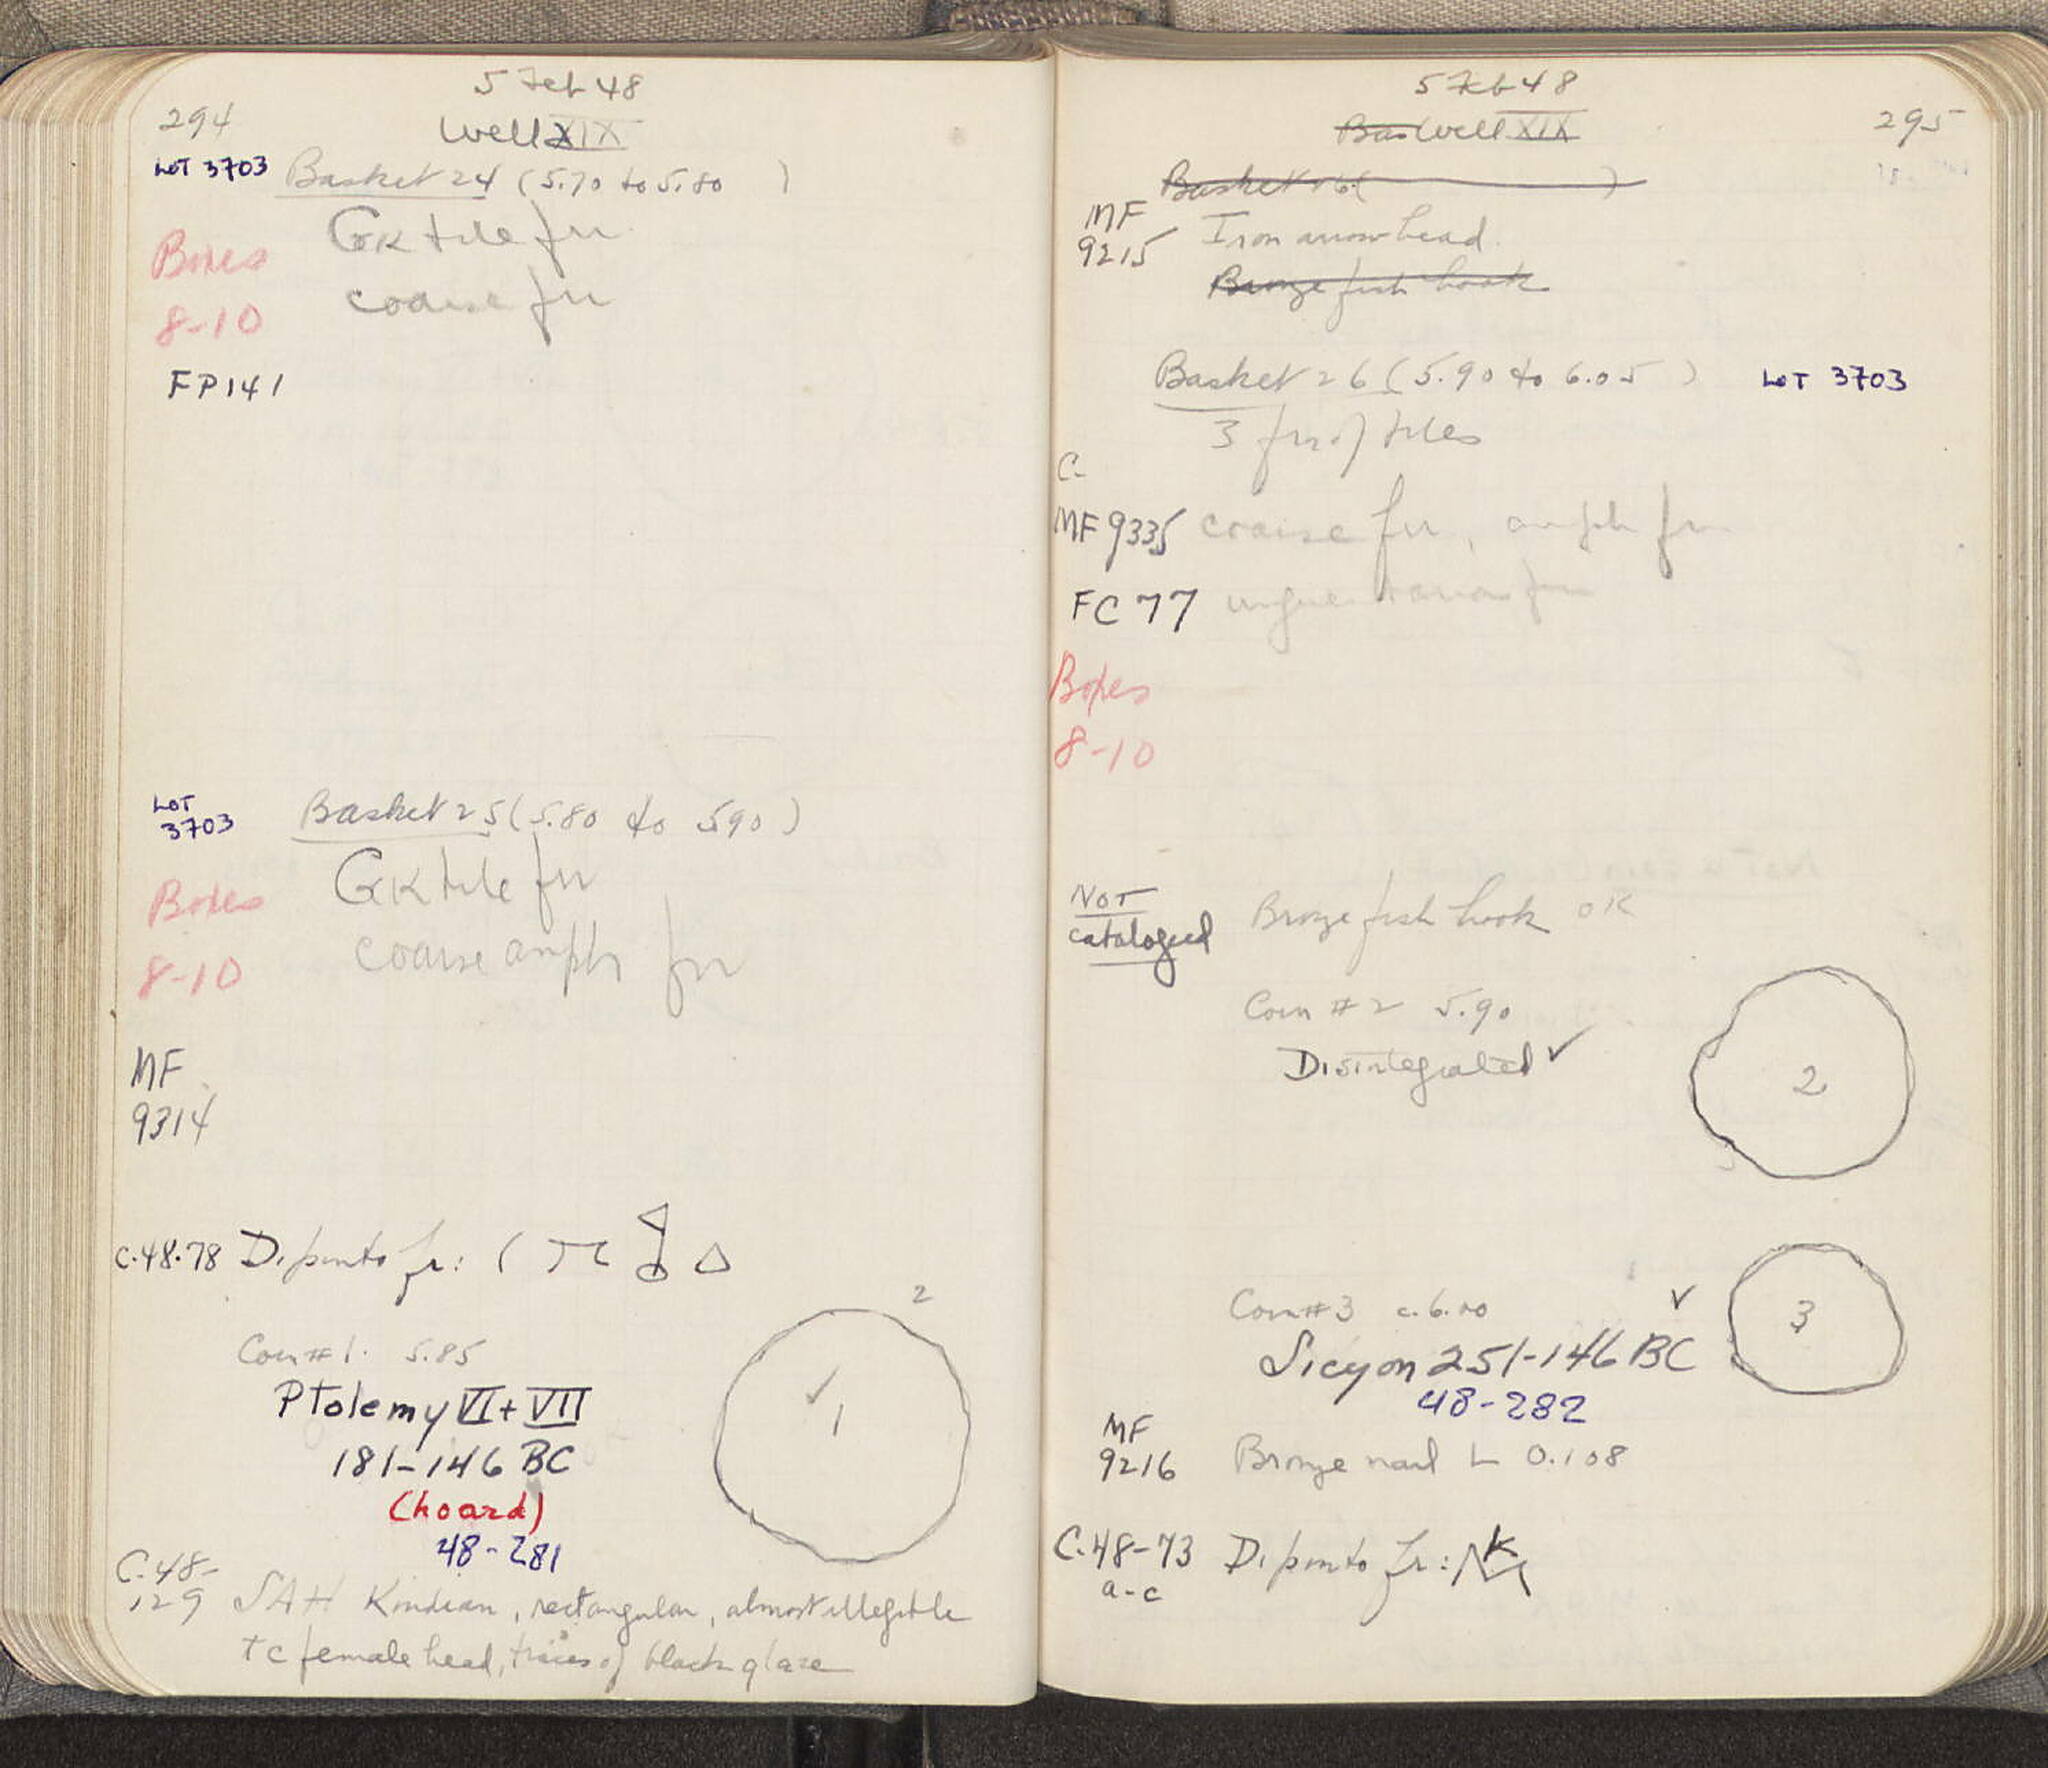 294
5 Feb 48
Well XIX
LOT 3703 Basket 24 (5.70 to 5.80 )
Boxes
8-10
GK tile frr
coarse frr
FP 141
LOT
3703
Basket 25 (5.80 to 590)
Boxes
8-10
GK tile frr
coarse amph frr
MF
9314
C.48.78 Dipinto fr: ( Δ
2
Coin #1. 5.85
✓ 1
Ptolemy VI + VII
181-146 BC
(hoard)
48-281
C.48-
129 SAH Knidian, rectangular, almost illegible
TC female head, traces of black glaze
5 Feb 48
295
Bas Well XIX
Basket 26 ( )
MF
9215 Iron arrowhead.
Bronze fish hook
Basket 26 (5.90 to 6.05 ) LOT 3703
3 frr of tiles
C-
MF 9335 coarse frr, amph frr
FC 77 unguentarion frr
Boxes
8-10
NOT
catalogued
Bronze fish hook OK
Coin #2 5.90
Disintegrated ✓
2
Coin #3 c. 6.00 ✓
3
Sicyon 251-146 BC
48-282
MF
9216 Bronze nail L 0.108
C.48-73 Dipinto fr:
a-c